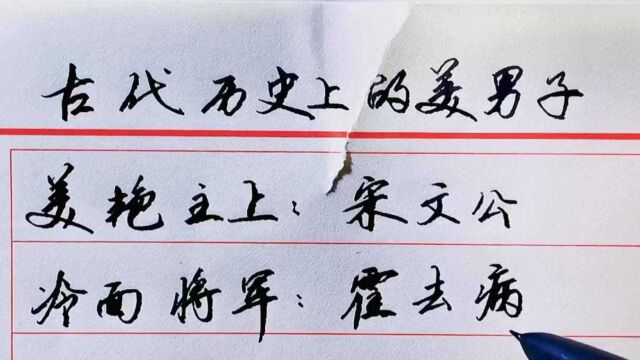 古代历史上的美男子
美艳主上：宋文公
冷面将军：霍去病